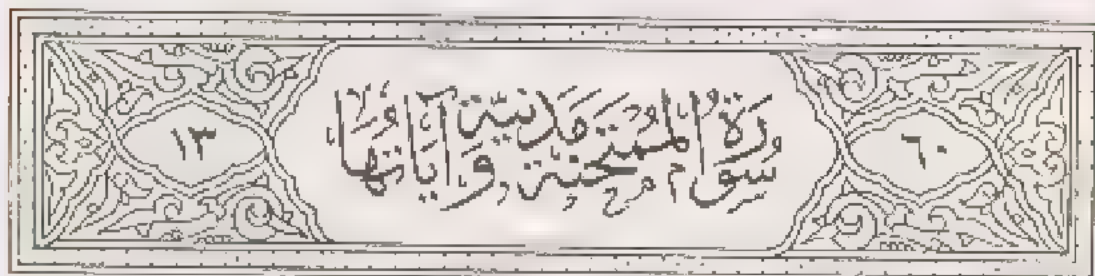 ٦٠
سُورَةُ المُمْتَحَنَةِ مَدَنِيَّةٌ وَآيَاتُهَا
١٣